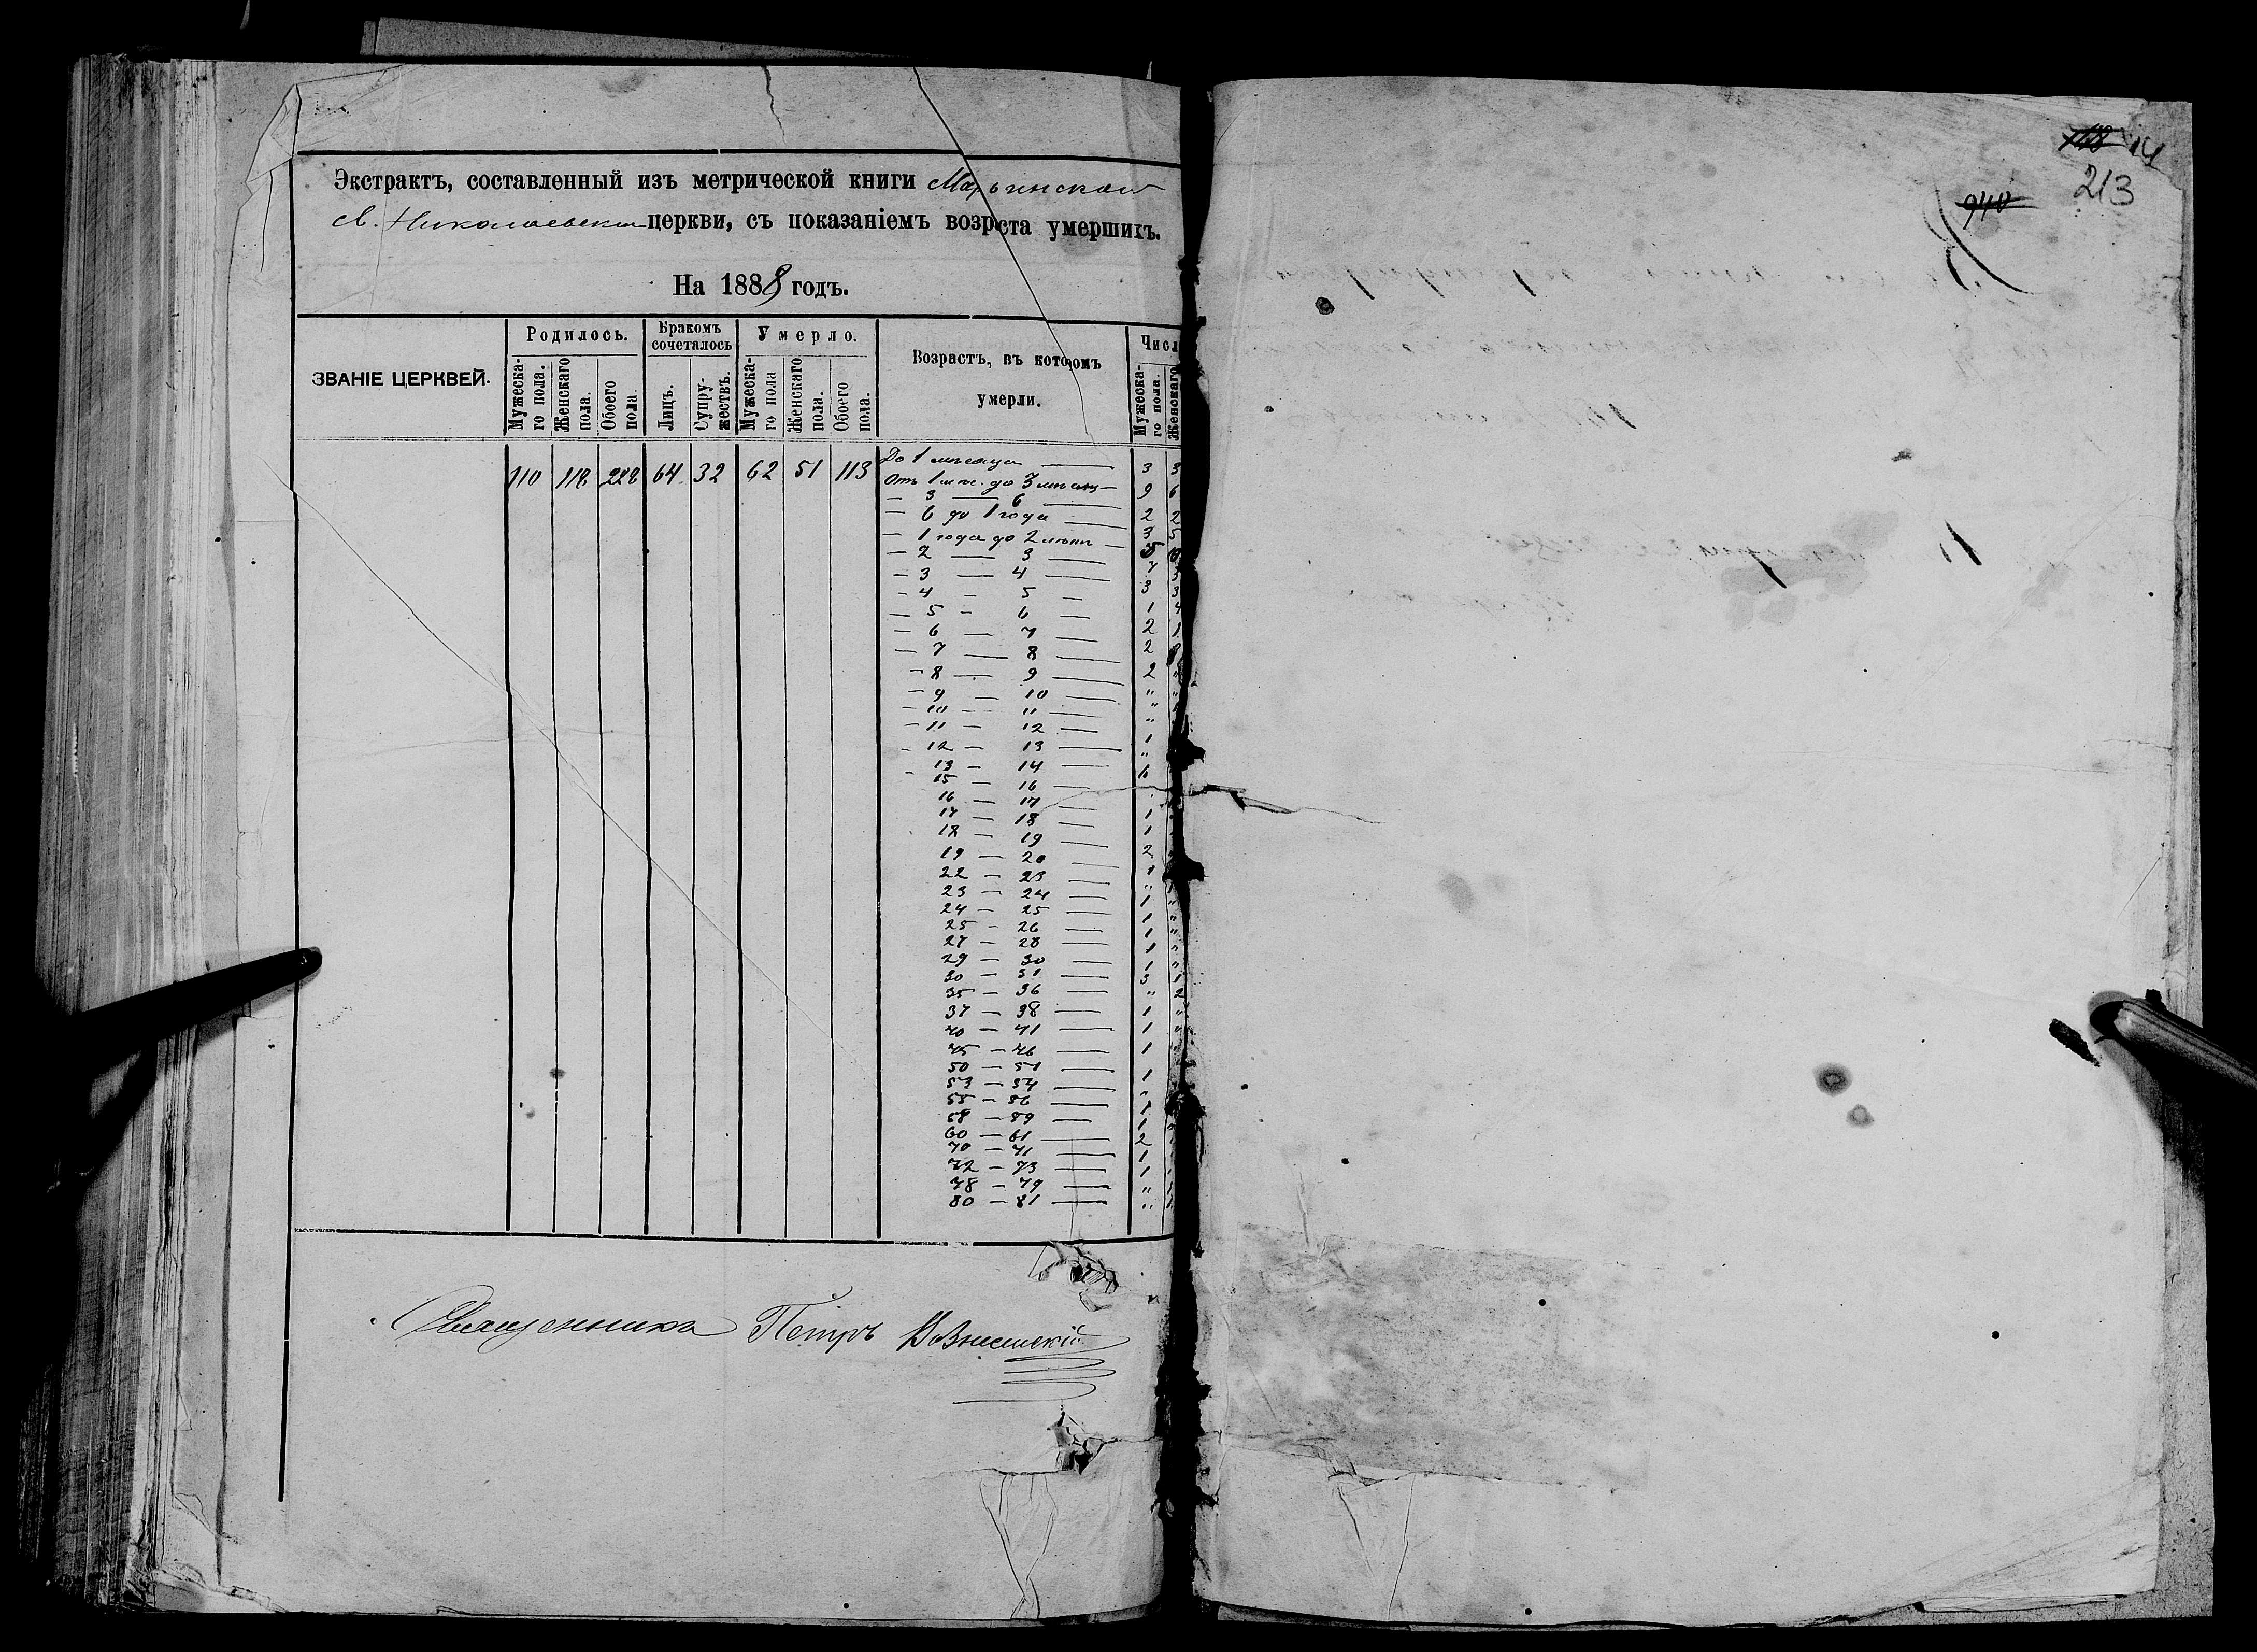 Экстрактъ, составленный изъ метрической книги Марьинской
Св. Николаевской церкви, съ показаніемъ возрста умершихъ.
На 1888 годъ.
ЗВАНІЕ ЦЕРКВЕЙ.
Родилось.
Бракомъ сочеталось
Умерло.
Возрастъ, въ которомъ
умерли.
Числ
Мужеска-го пола.
Женскаго пола.
Обоего пола.
Лицъ.
Супру-жествъ.
Мужеска-го пола
Женскаго пола.
Обоего пола.
Мужеска-го пола.
Женскаго
110 118 228 64 32 62 51 113
До 1 месяца — 3 3
Отъ 1 мес. до 3 месяц — 9 6
— 3 — 6 — 2 2
— 6 до 1 года — 3 5
— 1 года до 2 летъ — 5
— 2 — 3 — 7
— 3 — 4 — 3 3
— 4 — 5 — 1 4
— 5 — 6 — 2 1
— 6 — 7 — 2
— 7 — 8 — 2
— 8 — 9 — "
— 9 — 10 — "
— 10 — 11 — "
— 11 — 12 — 1
— 12 — 13 — "
— 13 — 14 —
15 — 16
16 — 17 — 1
17 — 18 — 1
18 — 19 — 2
19 — 20 — 1
22 — 23 — "
23 — 24 — 1
24 — 25 — 1
25 — 26 — 1
27 — 28 — 1
29 — 30 — 1
30 — 31 — 3 1
35 — 36 — " 2
37 — 38 — 1 "
40 — 41 — 1 "
45 — 46 — 1
50 — 51 — 1
53 — 54 — "
55 — 56 — 1
58 — 59 — 1
60 — 61 — 2
70 — 71 — 1
72 — 73 — 1
78 — 79 — "
80 — 81 — "
Священникъ Петръ Вознесенскій
14
213
940